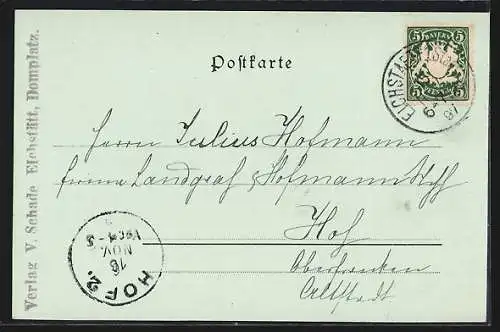 Postkarte
5 BAYERN 5
5 PFENNIG 5
EICHSTÄTT
Herrn Julius Hofmann
Firma Landgraf Hofmann
Hof
Oberfranken
Altstadt
HOF 2.
16
NOV.
Verlag V. Schade Eichstätt, Domplatz.